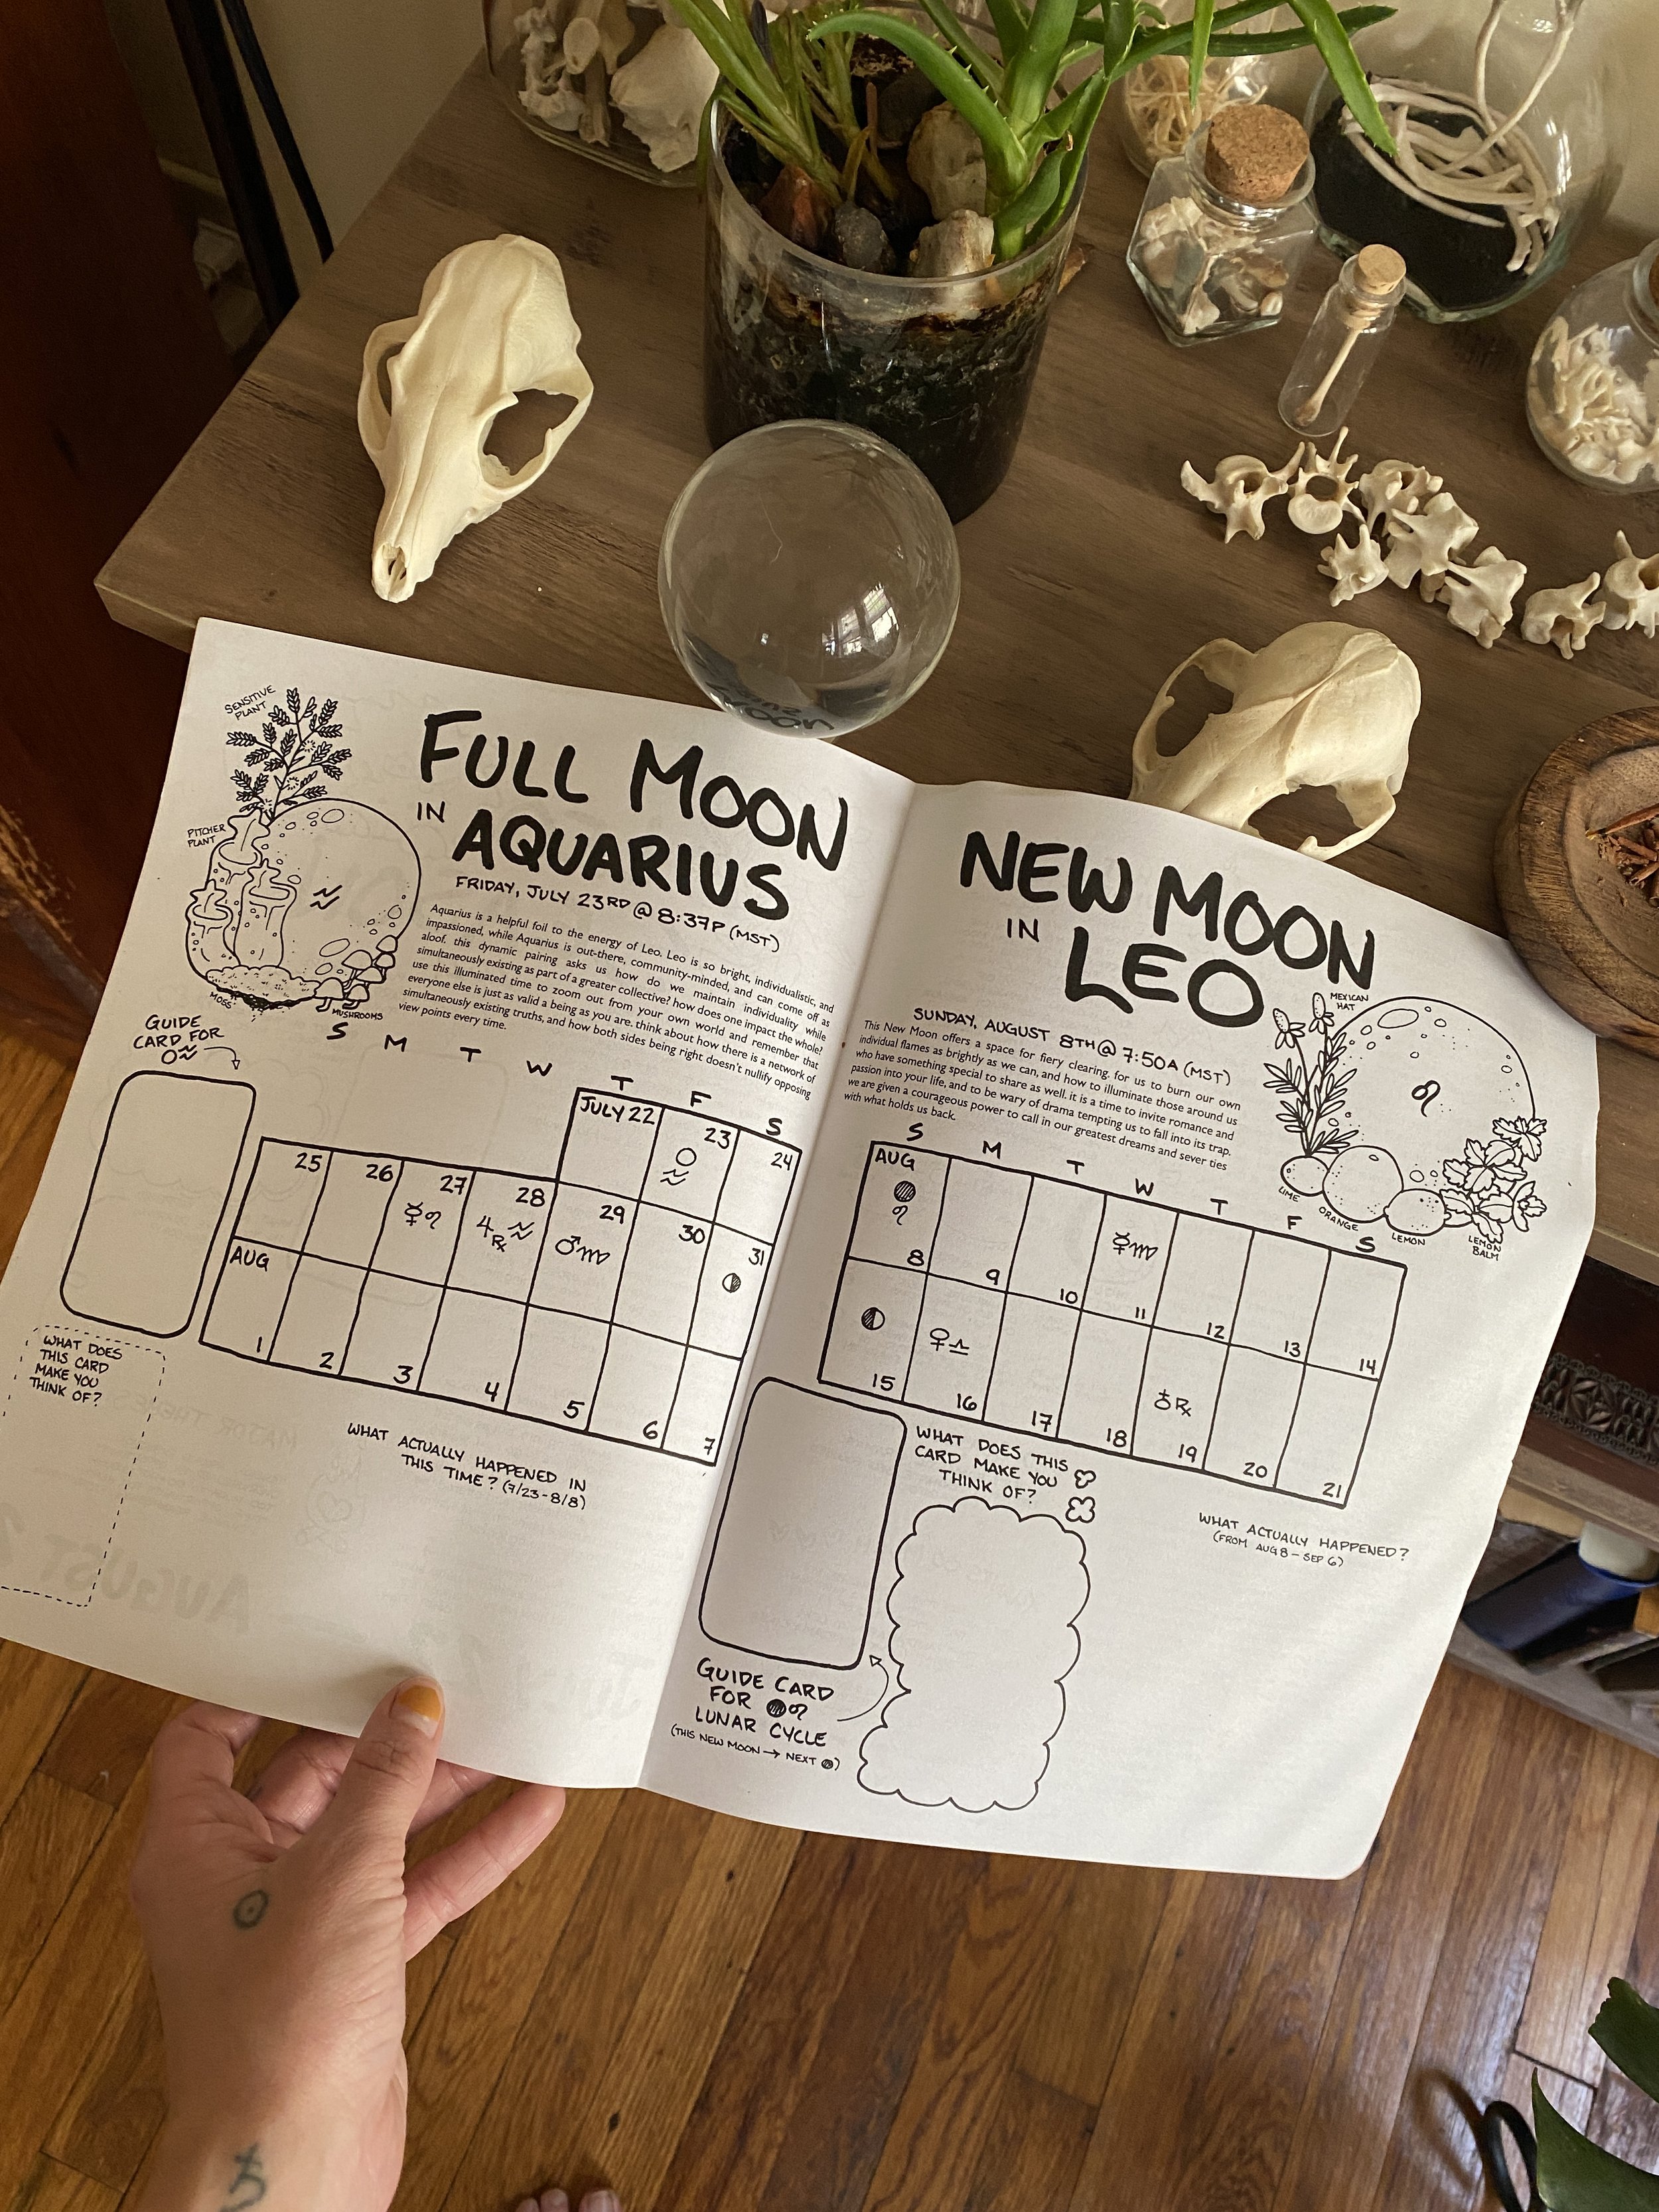 SENSITIVE
PLANT
PITCHER
PLANT
MOSS
MUSHROOMS
FULL MOON
IN AQUARIUS
FRIDAY, JULY 23RD @ 8:37P (MST)
Aquarius is a helpful foil to the energy of Leo. Leo is so bright, individualistic, and
impassioned, while Aquarius is out-there, community-minded, and can come off as
aloof. this dynamic pairing asks us how do we maintain individuality while
simultaneously existing as part of a greater collective? how does one impact the whole?
use this illuminated time to zoom out from your own world and remember that
everyone else is just as valid a being as you are. think about how there is a network of
simultaneously existing truths, and how both sides being right doesn't nullify opposing
view points every time.
GUIDE
CARD FOR
○♒
S M T W T F S
JULY 22 23 24
○
♒
25 26 27 28 29 30 31
☿♌ ♃℞♒ ♂♍ ◑
AUG
1 2 3 4 5 6 7
WHAT DOES
THIS CARD
MAKE YOU
THINK OF?
WHAT ACTUALLY HAPPENED IN
THIS TIME? (7/23-8/8)
NEW MOON
IN LEO
SUNDAY, AUGUST 8TH @ 7:50A (MST)
This New Moon offers a space for fiery clearing. for us to burn our own
individual flames as brightly as we can, and how to illuminate those around us
who have something special to share as well. it is a time to invite romance and
passion into your life, and to be wary of drama tempting us to fall into its trap.
we are given a courageous power to call in our greatest dreams and sever ties
with what holds us back.
MEXICAN
HAT
♌
LIME
ORANGE
LEMON
LEMON
BALM
S M T W T F S
AUG
● ♌ ☿♍
8 9 10 11 12 13 14
◐ ♀♎ ♅℞
15 16 17 18 19 20 21
WHAT DOES THIS
CARD MAKE YOU
THINK OF?
WHAT ACTUALLY HAPPENED?
(FROM AUG 8 - SEP 6)
GUIDE CARD
FOR ●♌
LUNAR CYCLE
(THIS NEW MOON → NEXT ●)